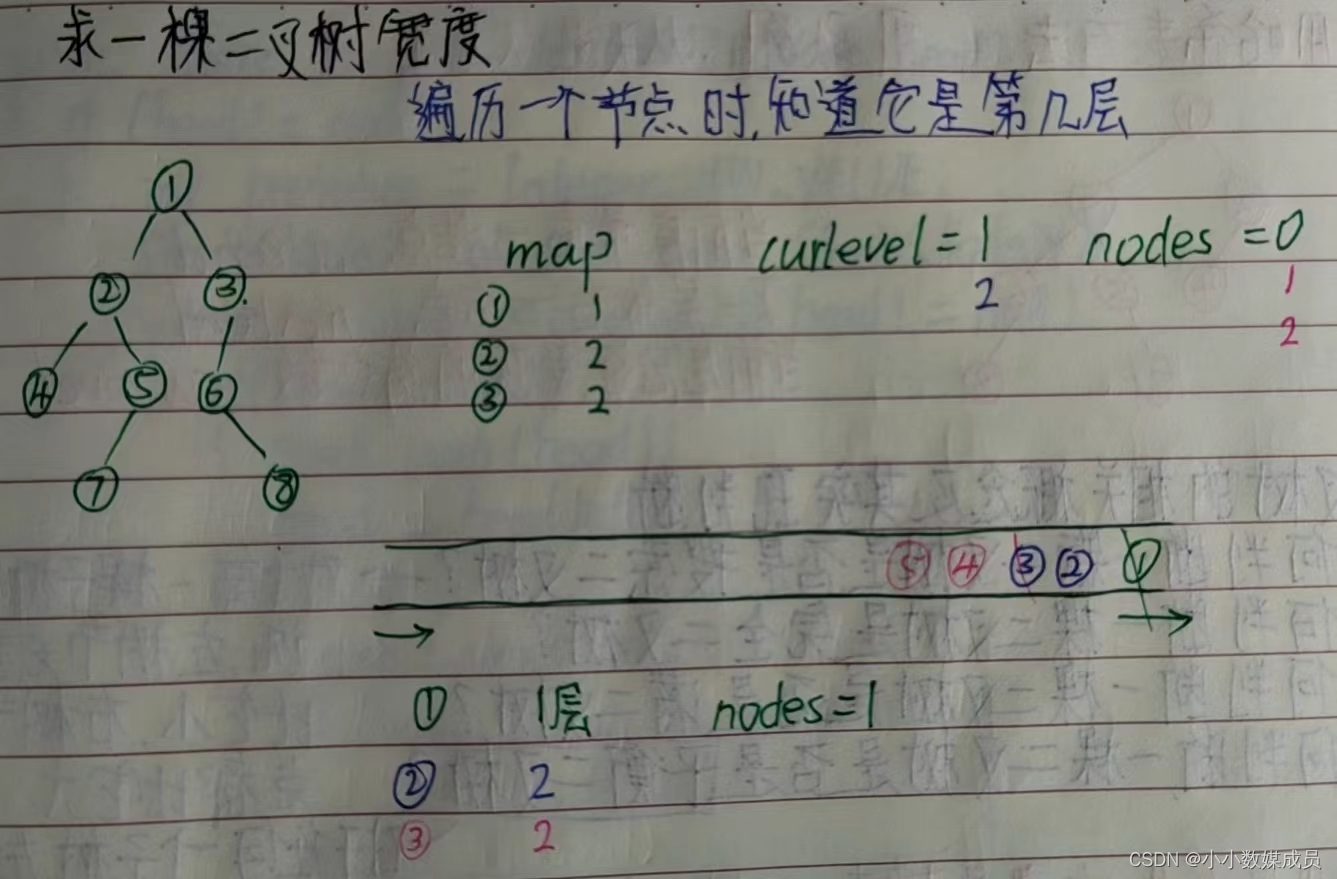 求一棵二叉树宽度
遍历一个节点时,知道它是第几层
①
② ③
④ ⑤ ⑥
⑦ ⑧
map curlevel=1 nodes=0
① 1 2 1
② 2 2
③ 2
⑤ ④ ③ ② ①
① 1层 nodes=1
② 2
③ 2
CSDN @小小数媒成员